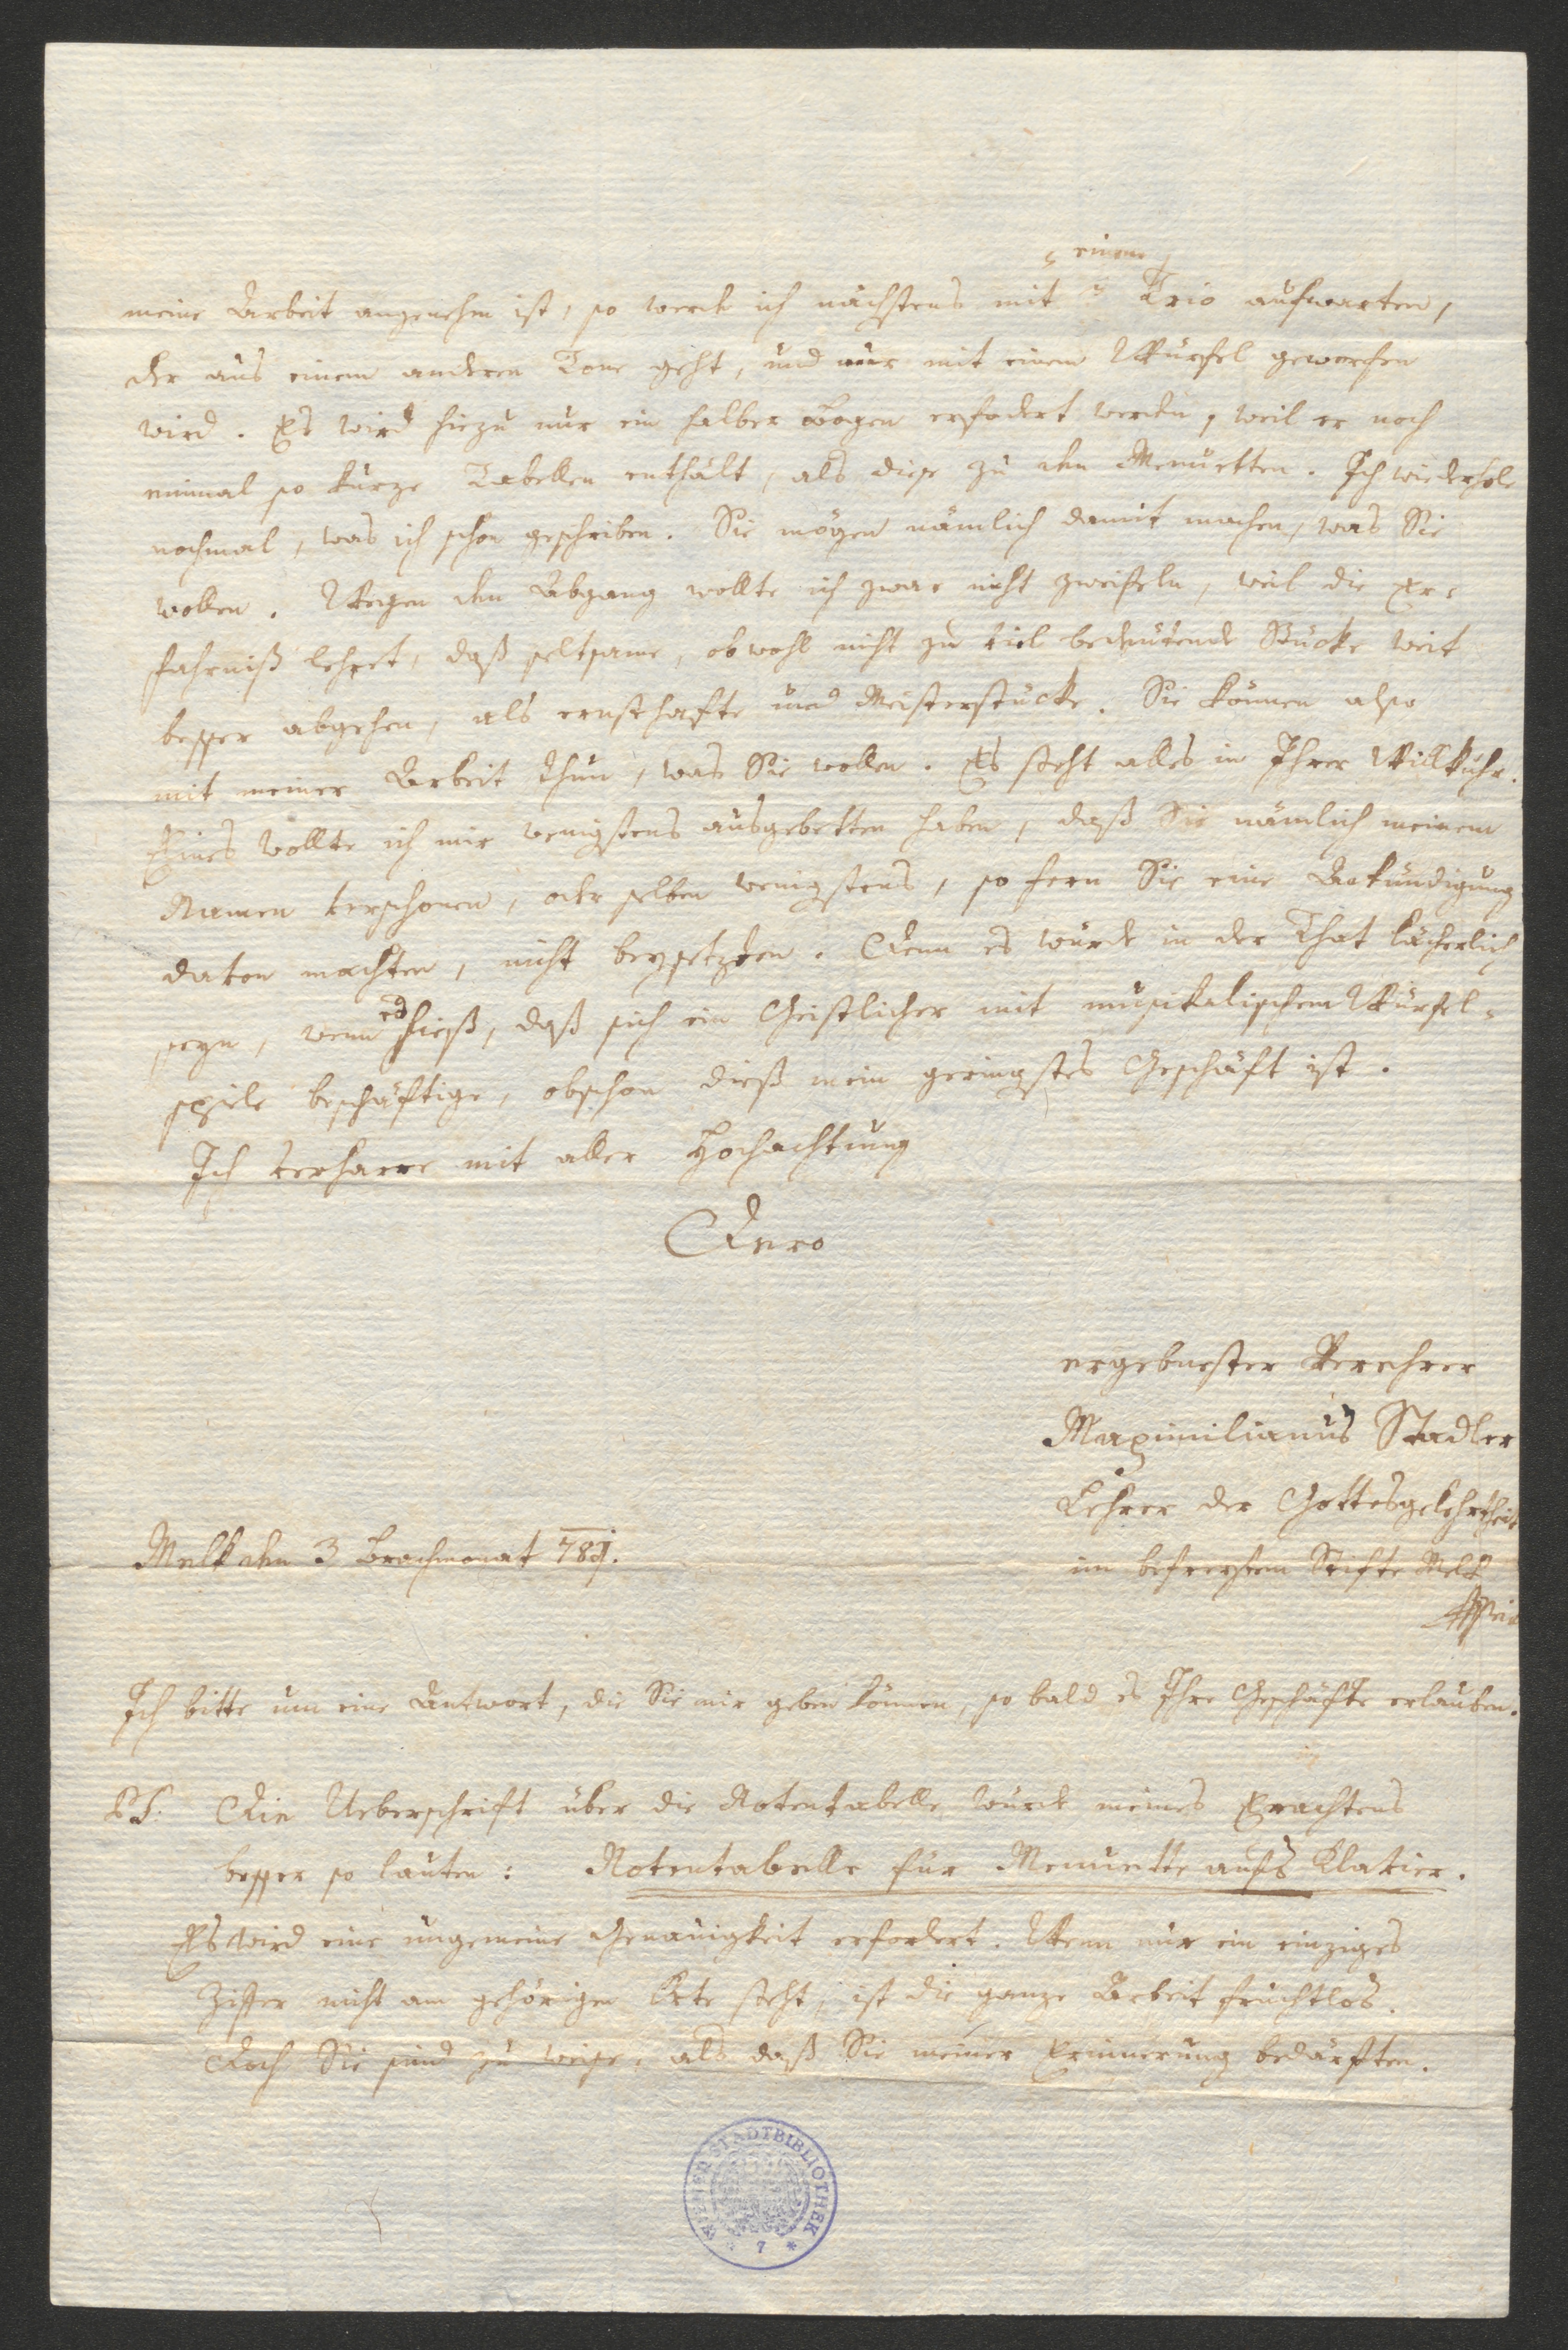 einem
meine Arbeit angenehm ist, so werde ich nächstens mit Trio aufwarten,
der aus einem anderen Tone geht, und nur mit einem Würfel geworfen
wird. Es wird hiezu nur ein halber Bogen erfodert werden, weil er noch
einmal so kurze Tabellen enthält, als diese zu den Menuetten. Ich wiederhole
nochmal, was ich schon geschrieben. Sie mögen nämlich damit machen, was Sie
wollen. Wegen den Abgang wollte ich zwar nicht zweifeln, weil die Er-
fahrniß lehret, daß seltsame, obwohl nicht zu viel bedeutende Stücke weit
besser abgehen, als ernsthafte und Meisterstücke. Sie können also
mit meiner Arbeit thun, was Sie wollen. Es steht alles in Ihrer Willkuhr.
Eines wollte ich mir wenigstens ausgebetten haben, daß Sie nämlich meinem
Namen verschonen, oder selben wenigstens, so fern Sie eine Ankündigung
davon machten, nicht beysetzten. Denn es würde in der That lächerlich
seyn, wenn es hieß, daß sich ein Geistlicher mit musikalischem Würfel-
spiele beschäftige, obschon dieß mein geringstes Geschäft ist.
Ich verharre mit aller Hochachtung
Dero
ergebnester Verehrer
Maximilianus Stadler
Lehrer der Gottesgelehrtheit
im befreyten Stifte Melk
Melk den 3 Brachmonat 781.
Ich bitte um eine Antwort, die Sie mir geben können, so bald es Ihre Geschäfte erlauben.
PS. Die Ueberschrift über die Notentabelle würde meines Erachtens
besser so lauten: Notentabelle für Menuette aufs Klavier.
Es wird eine ungemeine Genauigkeit erfordert. Wenn nur ein einziges
Ziffer nicht am gehörigen Orte steht, ist die ganze Arbeit fruchtlos.
Doch Sie sind zu weise, als daß Sie meiner Erinnerung bedürften.
WIENER STADTBIBLIOTHEK
* 7 *